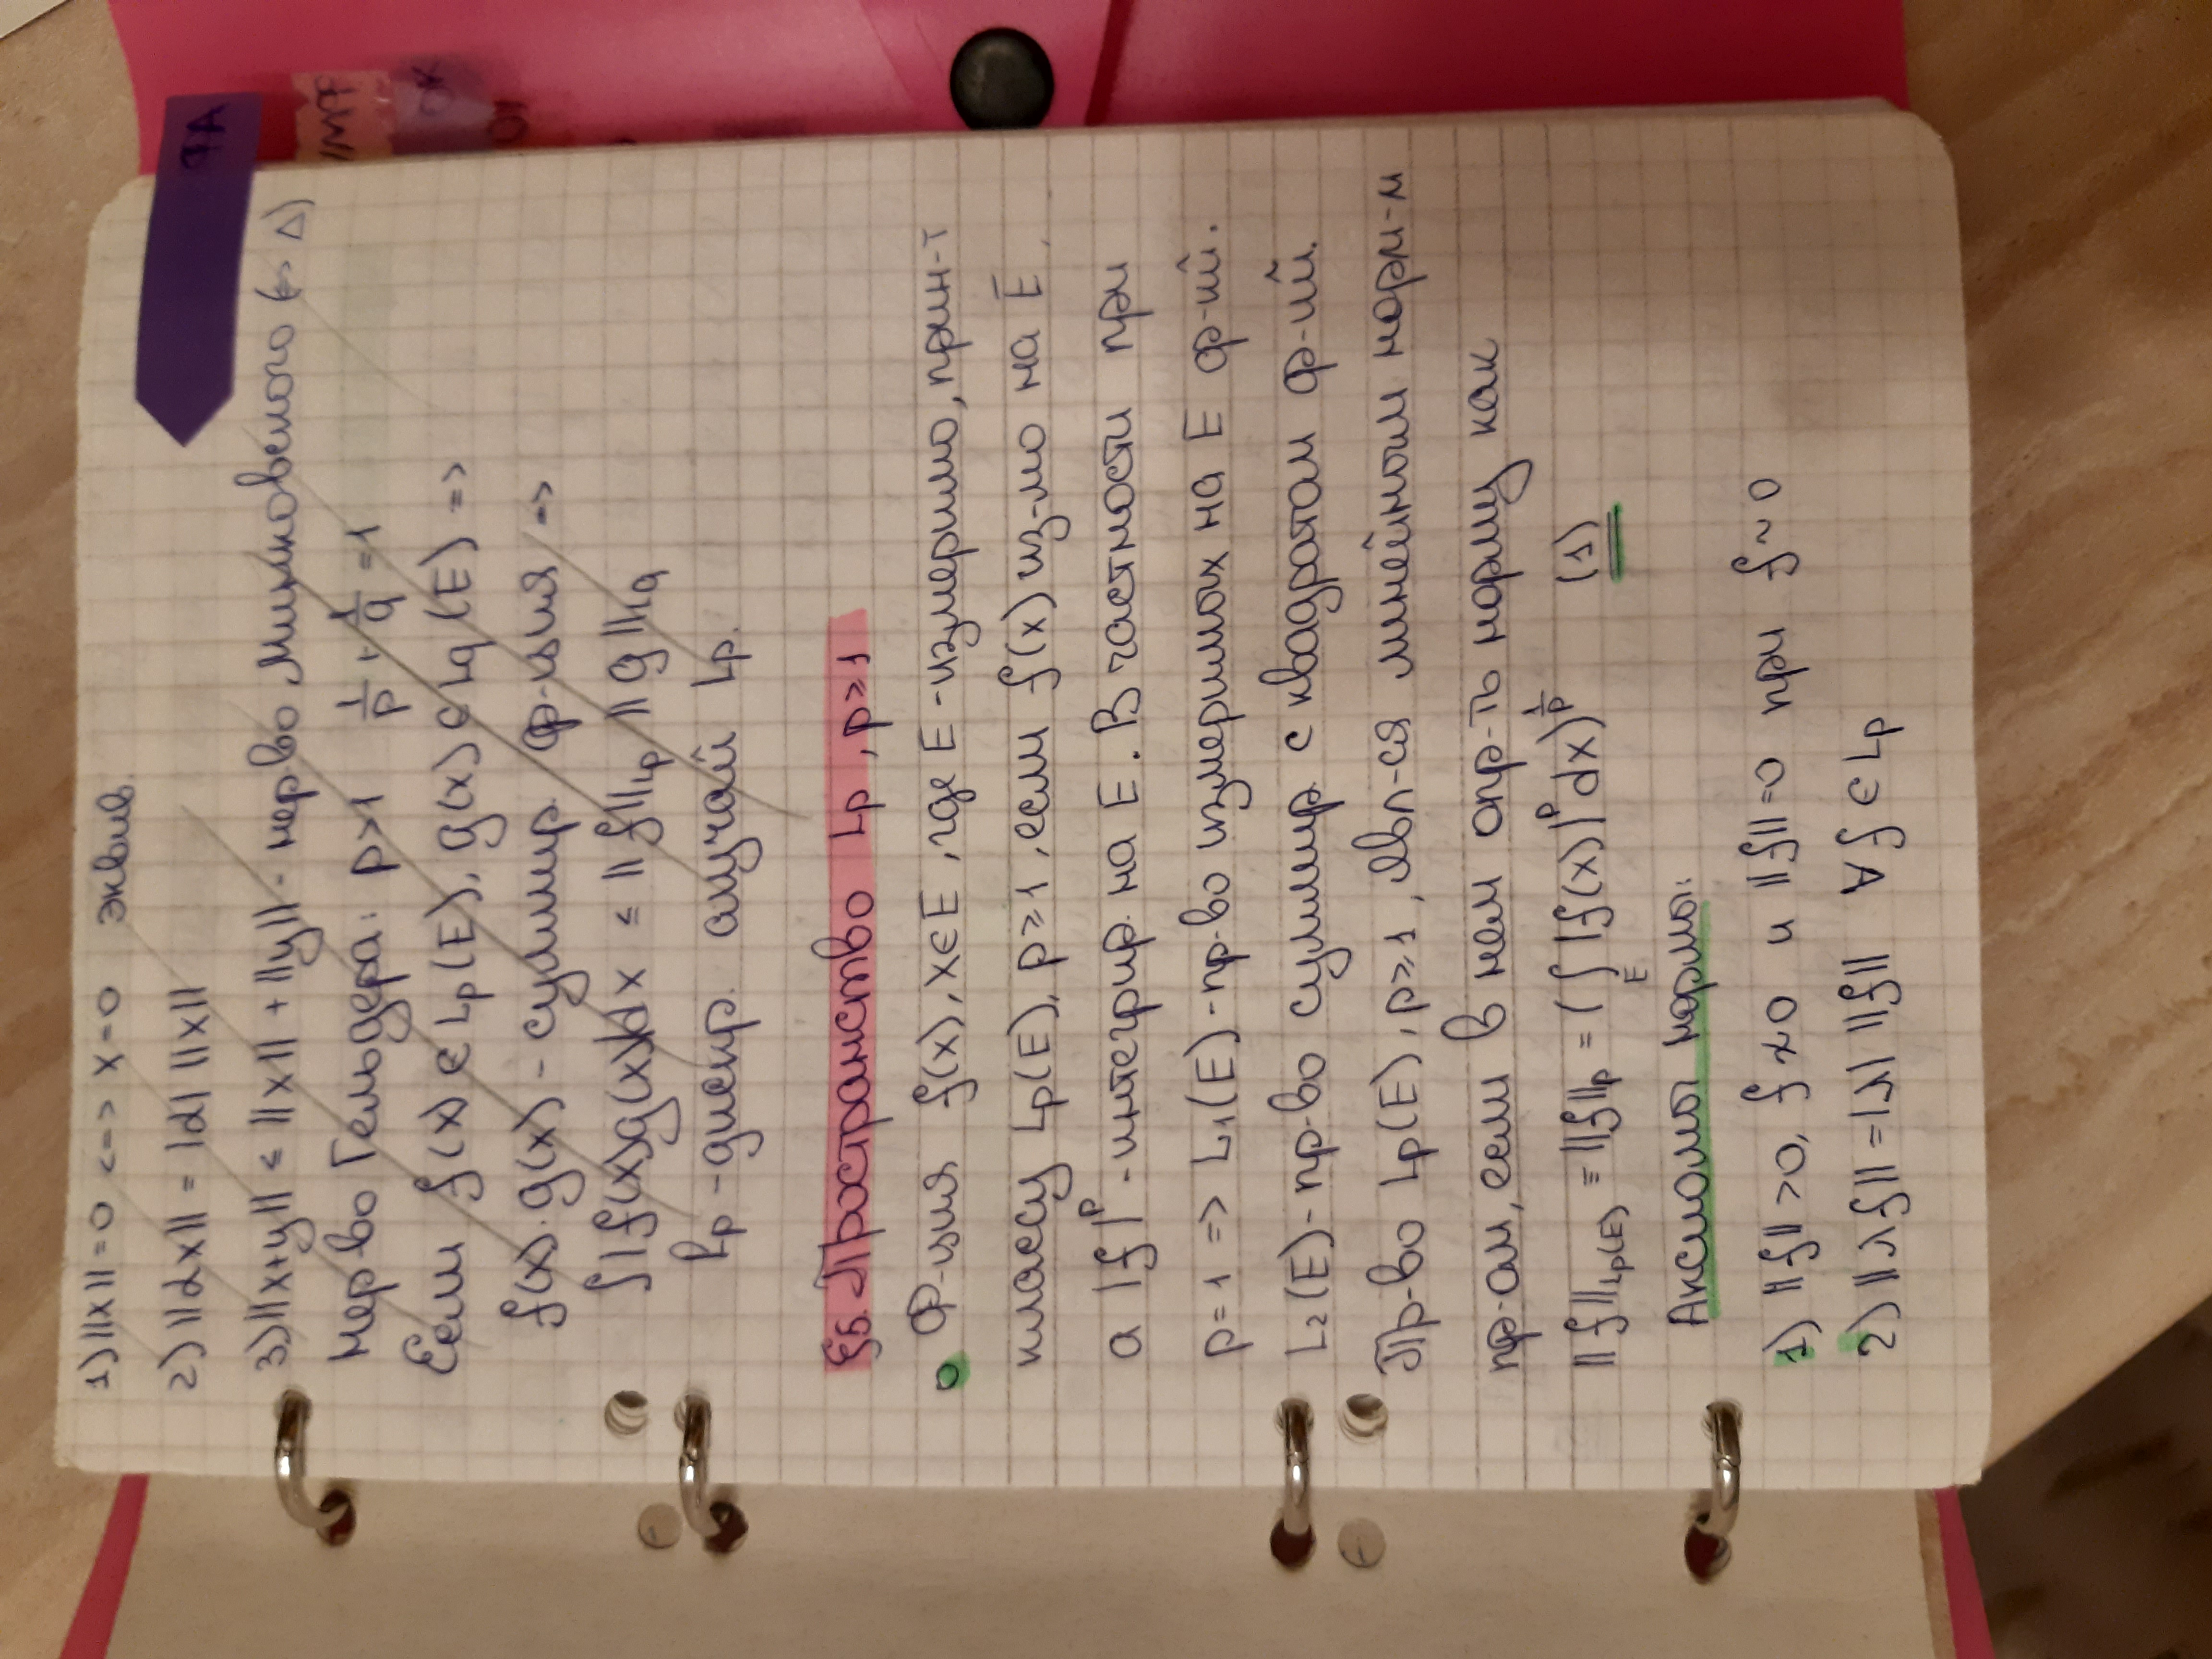 ФА
УМФ
1) ||x|| = 0 <=> x = 0 эквив.
2) ||αx|| = |α| ||x||
3) ||x+y|| ≤ ||x|| + ||y|| - нер-во Минковского (=> Δ)
Нер-во Гельдера: p>1 1/p + 1/q = 1
Если f(x) ∈ Lp(E), g(x) ∈ Lq(E) =>
f(x)·g(x) - суммир. ф-ция =>
∫|f(x)g(x)|dx ≤ ||f||Lp ||g||Lq
lp - дискр. случай Lp.
§5. Пространство Lp, p≥1
Ф-ция f(x), x∈E, где E - измеримо, прин-т
классу Lp(E), p≥1, если f(x) из-мо на E,
а |f|^p - интегрир. на E. В частности при
p=1 => L₁(E) - пр-во измеримых на E ф-ий.
L₂(E) - пр-во суммир. с квадратом ф-ий.
Пр-во Lp(E), p≥1, явл-ся линейном норм-м
пр-ом, если в нем опр-ть норму как
||f||Lp(E) ≡ ||f||p = (∫E |f(x)|^p dx)^1/p (1)
Аксиомы нормы:
1) ||f|| >0, f ≁ 0 и ||f||=0 при f ~ 0
2) ||λf|| = |λ| ||f|| ∀ f ∈ Lp